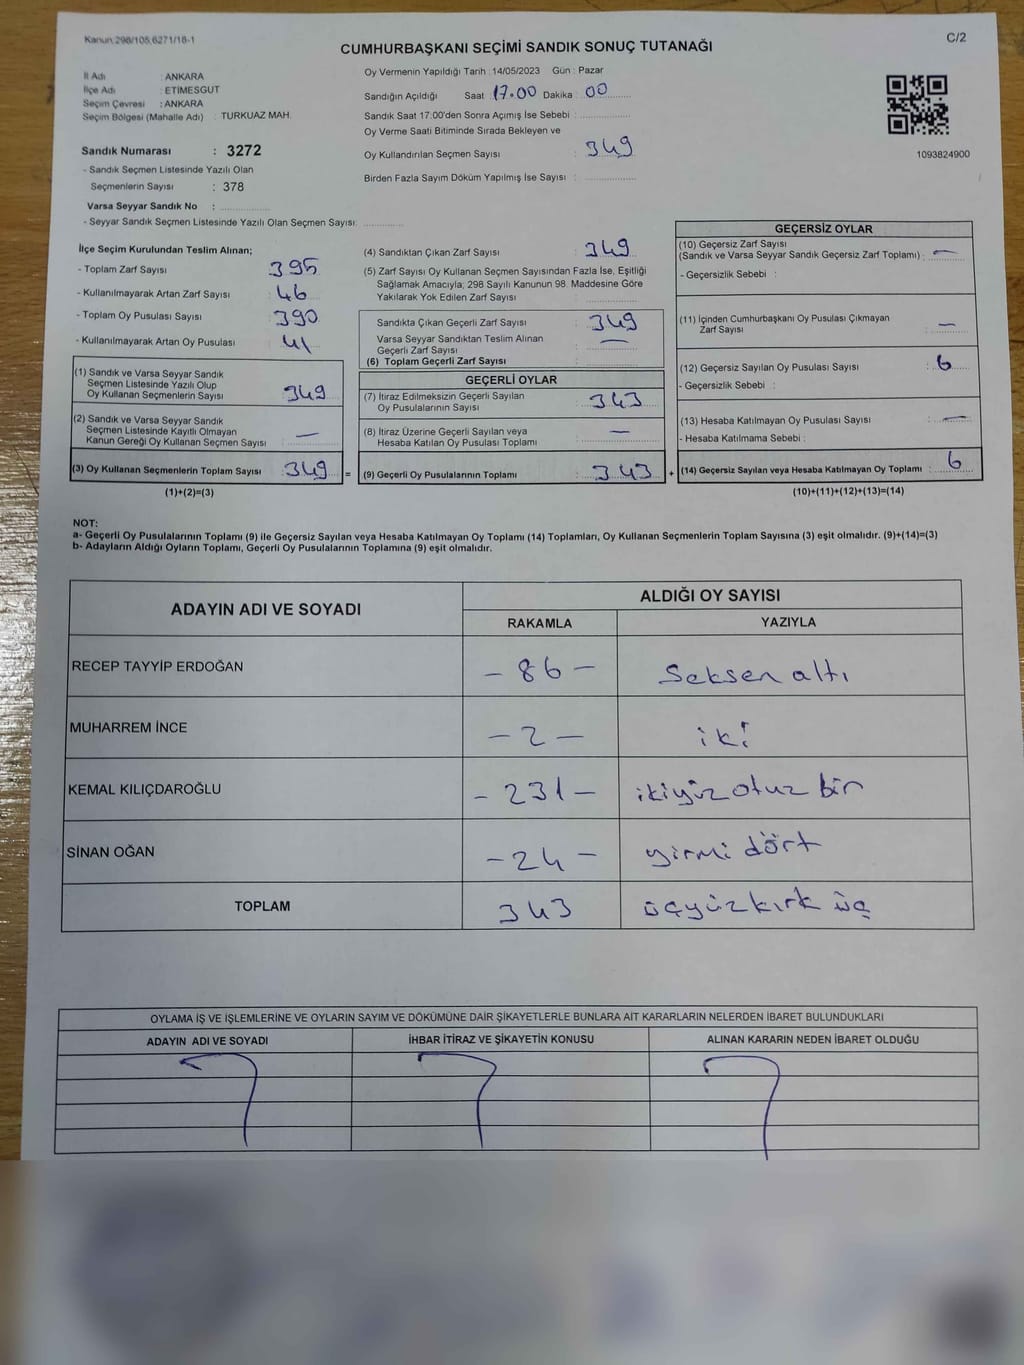 Kanun:298/105,6271/18-1
C/2
CUMHURBAŞKANI SEÇİMİ SANDIK SONUÇ TUTANAĞI
İl Adı : ANKARA
İlçe Adı : ETİMESGUT
Seçim Çevresi : ANKARA
Seçim Bölgesi (Mahalle Adı) : TURKUAZ MAH.
Sandık Numarası : 3272
- Sandık Seçmen Listesinde Yazılı Olan
Seçmenlerin Sayısı : 378
Varsa Seyyar Sandık No :
- Seyyar Sandık Seçmen Listesinde Yazılı Olan Seçmen Sayısı:
Oy Vermenin Yapıldığı Tarih : 14/05/2023 Gün : Pazar
Sandığın Açıldığı Saat 17.00 Dakika : 00
Sandık Saat 17.00'den Sonra Açımış İse Sebebi :
Oy Verme Saati Bitiminde Sırada Bekleyen ve
Oy Kullandırılan Seçmen Sayısı : 349
Birden Fazla Sayım Döküm Yapılmış İse Sayısı :
1093824900
İlçe Seçim Kurulundan Teslim Alınan;
- Toplam Zarf Sayısı : 395
- Kullanılmayarak Artan Zarf Sayısı : 46
- Toplam Oy Pusulası Sayısı : 390
- Kullanılmayarak Artan Oy Pusulası : 41
(1) Sandık ve Varsa Seyyar Sandık
Seçmen Listesinde Yazılı Olup
Oy Kullanan Seçmenlerin Sayısı : 349
(2) Sandık ve Varsa Seyyar Sandık
Seçmen Listesinde Kayıtlı Olmayan
Kanun Gereği Oy Kullanan Seçmen Sayısı : —
(3) Oy Kullanan Seçmenlerin Toplam Sayısı : 349 =
(1)+(2)=(3)
(4) Sandıktan Çıkan Zarf Sayısı : 349
(5) Zarf Sayısı Oy Kullanan Seçmen Sayısından Fazla İse, Eşitliği
Sağlamak Amacıyla; 298 Sayılı Kanunun 98. Maddesine Göre
Yakılarak Yok Edilen Zarf Sayısı :
Sandıkta Çıkan Geçerli Zarf Sayısı : 349
Varsa Seyyar Sandıktan Teslim Alınan
Geçerli Zarf Sayısı : —
(6) Toplam Geçerli Zarf Sayısı :
GEÇERLİ OYLAR
(7) İtiraz Edilmeksizin Geçerli Sayılan
Oy Pusulalarının Sayısı : 343
(8) İtiraz Üzerine Geçerli Sayılan veya
Hesaba Katılan Oy Pusulası Toplamı : —
(9) Geçerli Oy Pusulalarının Toplamı : 343 +
GEÇERSİZ OYLAR
(10) Geçersiz Zarf Sayısı
(Sandık ve Varsa Seyyar Sandık Geçersiz Zarf Toplamı) : —
- Geçersizlik Sebebi :
(11) İçinden Cumhurbaşkanı Oy Pusulası Çıkmayan
Zarf Sayısı : —
(12) Geçersiz Sayılan Oy Pusulası Sayısı : 6
- Geçersizlik Sebebi :
(13) Hesaba Katılmayan Oy Pusulası Sayısı : —
- Hesaba Katılmama Sebebi :
(14) Geçersiz Sayılan veya Hesaba Katılmayan Oy Toplamı : 6
(10)+(11)+(12)+(13)=(14)
NOT:
a- Geçerli Oy Pusulalarının Toplamı (9) ile Geçersiz Sayılan veya Hesaba Katılmayan Oy Toplamı (14) Toplamları, Oy Kullanan Seçmenlerin Toplam Sayısına (3) eşit olmalıdır. (9)+(14)=(3)
b- Adayların Aldığı Oyların Toplamı, Geçerli Oy Pusulalarının Toplamına (9) eşit olmalıdır.
ADAYIN ADI VE SOYADI
ALDIĞI OY SAYISI
RAKAMLA YAZIYLA
RECEP TAYYİP ERDOĞAN – 86 – Seksen altı
MUHARREM İNCE – 2 – iki
KEMAL KILIÇDAROĞLU – 231 – ikiyüz otuz bir
SİNAN OĞAN – 24 – yirmi dört
TOPLAM 343 üçyüzkırk üç
OYLAMA İŞ VE İŞLEMLERİNE VE OYLARIN SAYIM VE DÖKÜMÜNE DAİR ŞİKAYETLERLE BUNLARA AİT KARARLARIN NELERDEN İBARET BULUNDUKLARI
ADAYIN ADI VE SOYADI İHBAR İTİRAZ VE ŞİKAYETİN KONUSU ALINAN KARARIN NEDEN İBARET OLDUĞU